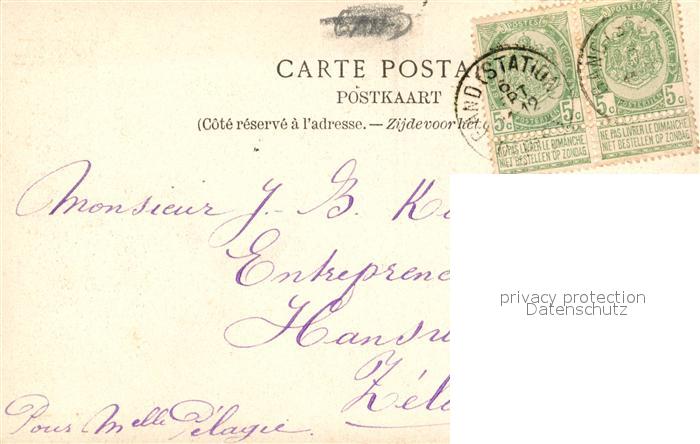 CARTE POSTA
POSTKAART
(Côté réservé à l'adresse. — Zijde voor het
POSTES
5c 5c
POSTERIJEN
NE PAS LIVRER LE DIMANCHE
NIET BESTELLEN OP ZONDAG
5c
POSTERIJEN
NE PAS LIVRER LE DIMANCHE
NIET BESTELLEN OP ZONDAG
GAND (STATION)
Monsieur J. B. K
Entrepren
Hans
Zél
Pour Melle Pélagie.
privacy protection
Datenschutz